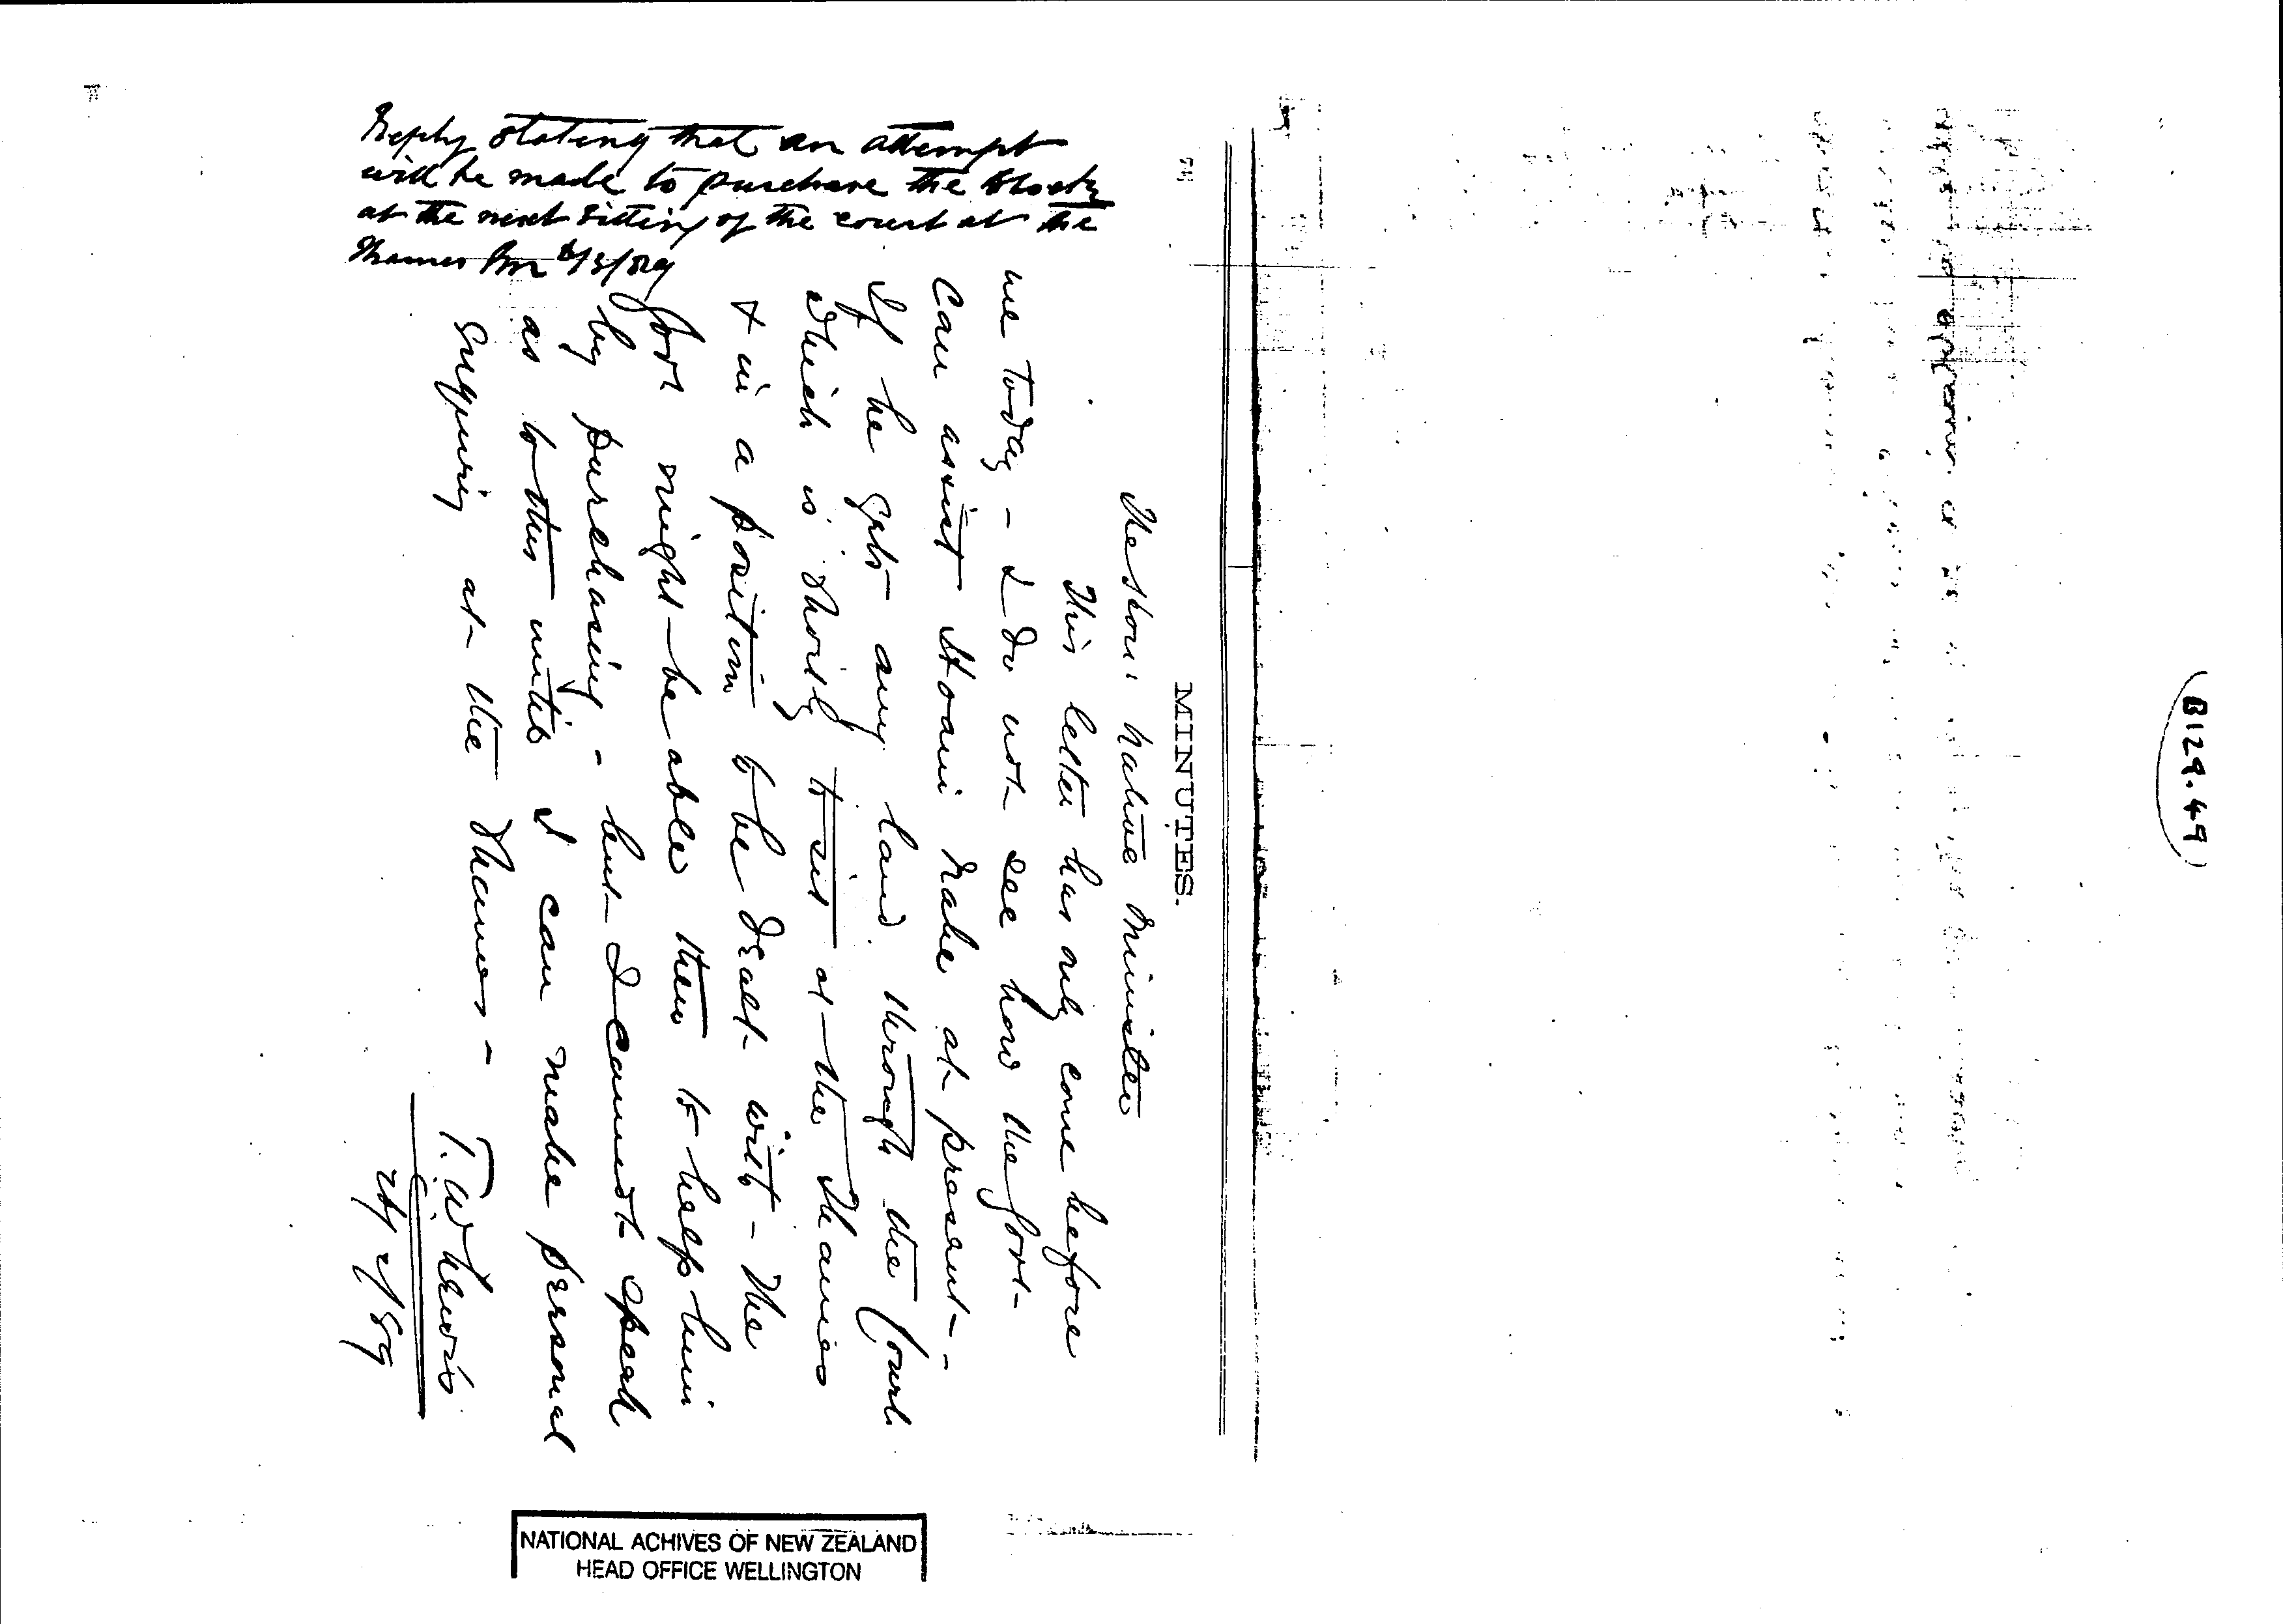 B129.49
MINUTES.
The Hon: Native Minister
This letter has only come before
me today - I do not see how the Govt-
can assist Hoani Nahe at present -
If he gets any land through the Court
which is shortly to sit at the Thames
& in a position to be dealt with - The
Govt might be able then to help him
by purchasing - but I cannot speak
as to this until I can make personal
enquiry at the Thames -
T. W. Lewis
/89
Reply stating that an attempt
will be made to purchase the block
at the next sitting of the court at the
Thames /3/89
NATIONAL ACHIVES OF NEW ZEALAND
HEAD OFFICE WELLINGTON